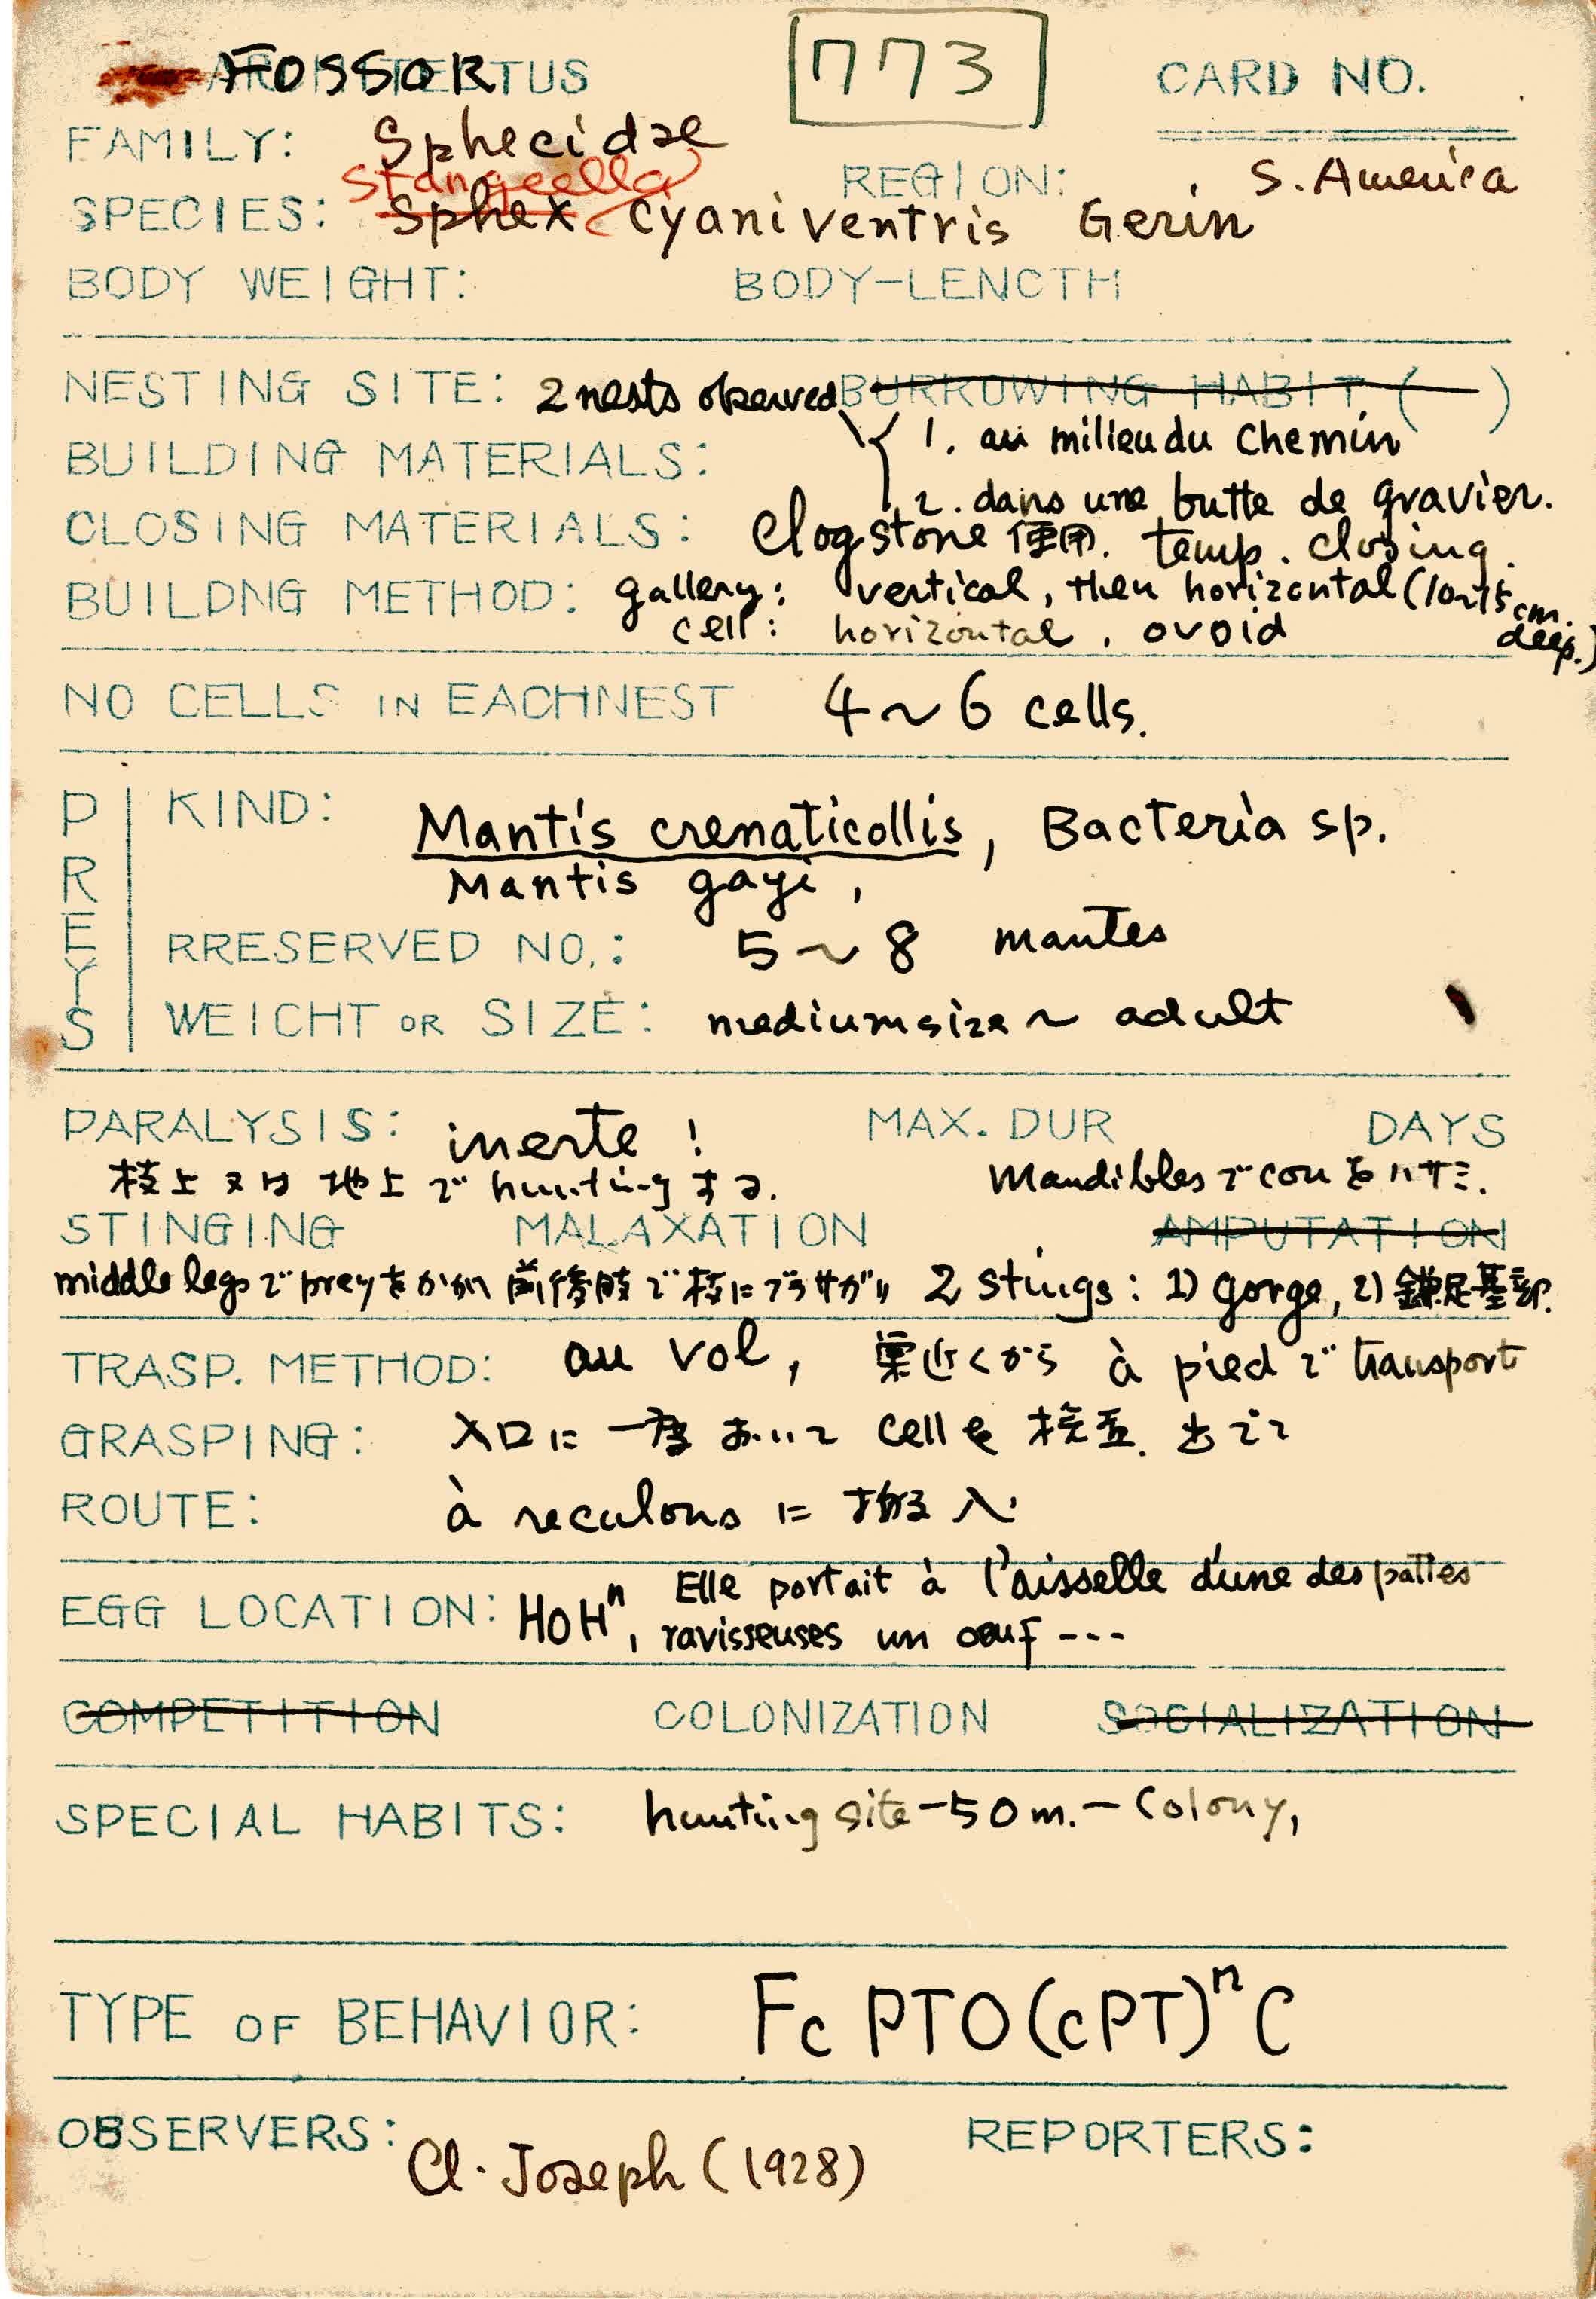 FOSSOR 773 CARD NO.
FAMILY: Sphecidae
REGION: S. America
Stangeella
SPECIES: Sphex cyaniventris Gerin
BODY WEIGHT: BODY-LENCTH
NESTING SITE: 2 nests observed BURROWING HABIT ( )
1. au milieu du chemin
BUILDING MATERIALS:
2. dans une butte de gravier.
CLOSING MATERIALS: clogstone 使用. temp. closing.
BUILDNG METHOD: gallery: vertical, then horizontal (10~15 cm. deep.)
cell: horizontal, ovoid
NO CELLS IN EACHNEST 4~6 cells.
PREYS
KIND: Mantis crenaticollis, Bacteria sp.
Mantis gayi,
RRESERVED NO.: 5~8 mantes
WEICHT OR SIZE: medium size ~ adult
PARALYSIS: inerte! MAX. DUR DAYS
枝上又は地上で huntingする. Mandiblesでcouをハサミ.
STINGING MALAXATION AMPUTATION
middle legsでpreyをかかへ 前後肢で枝にブラサガリ 2 stings: 1) gorge, 2) 鎌足基部.
TRASP. METHOD: au vol, 巣近くから à piedでtransport
GRASPING: 入口に一度おいて cellを検査. 出でて
ROUTE: à reculons に搬入.
Elle portait à l'aisselle d'une des pattes
EGG LOCATION: HOHⁿ, ravisseuses un oeuf ---
COMPETITION COLONIZATION SOCIALIZATION
SPECIAL HABITS: hunting site-50m.-Colony,
TYPE OF BEHAVIOR: Fc PTO(cPT)ⁿC
OBSERVERS: Cl. Joseph (1928) REPORTERS: